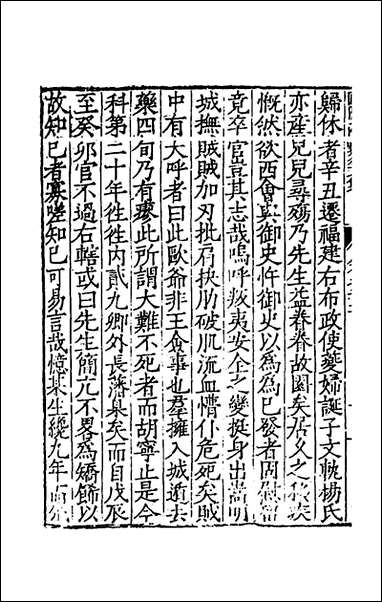 歸休者辛丑遷福建右布政使夔婦誕子文楊氏
亦産兒兒尋殤乃先生益眷眷故園矣居久之移疾
慨然欲西會與御史忤御史以為為已發者因
竟卒官豈其志哉嗚呼叛夷安全之變挺身出當明
城撫賊賊加刃批肩抉肋破肌流血懵仆危死矣賊
中有大呼者曰此歐爺非王僉事也羣擁入城遁去
藥四旬乃有瘳此所謂大難不死者而胡寧止是今
科第二十年徃徃内貳九卿外長藩臬矣而自戊辰
至癸卯官不過右轄或曰先生簡亢不畧為矯飾以
故知巳者寡嗟知巳可易言哉憶某生纔九年而